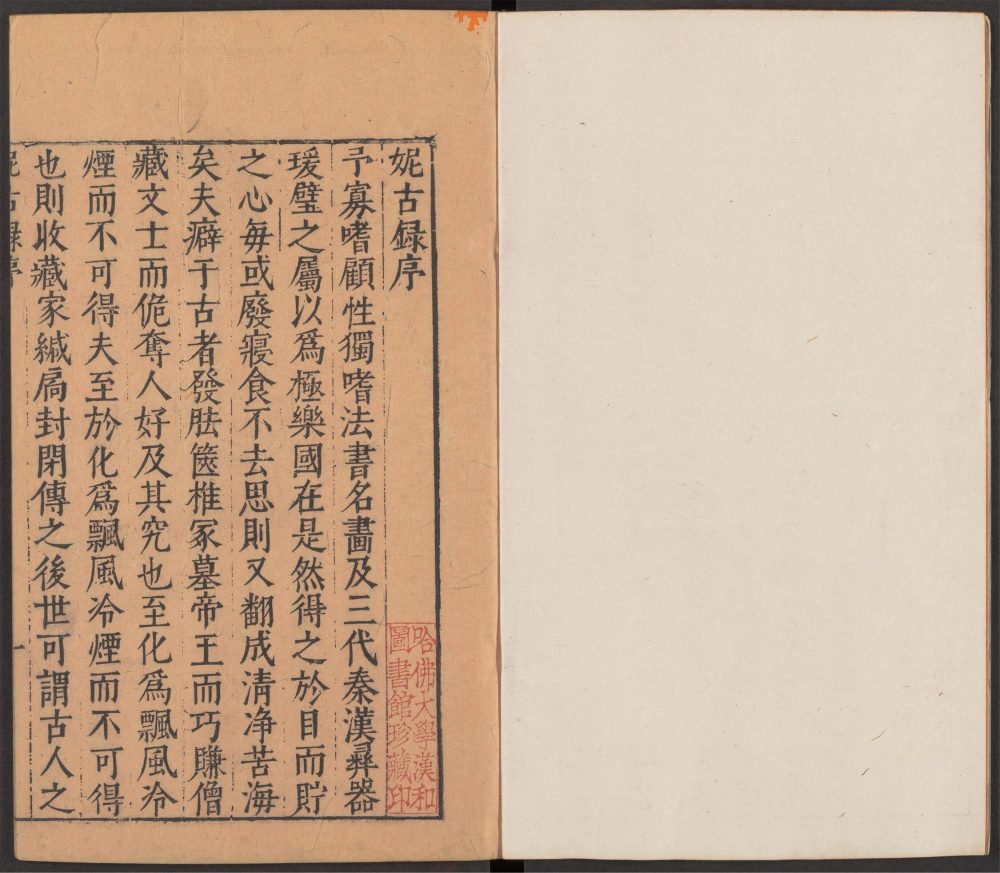 妮古録序
予寡嗜顧性獨嗜法書名畫及三代秦漢彝器
瑗璧之屬以爲極樂國在是然得之於目而貯
之心每或廢寢食不去思則又翻成清净苦海
矣夫癖于古者發胠篋椎冢墓帝王而巧賺僧
藏文士而佹奪人好及其究也至化爲飄風冷
煙而不可得夫至於化爲飄風冷煙而不可得
也則收藏家緘扃封閉傳之後世可謂古人之
妮古録序
一
哈佛大學漢和
圖書館珍藏印